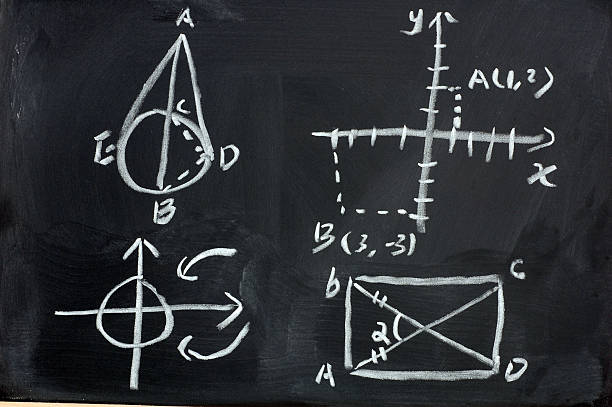 A
C
E
D
B
y
A(1,2)
x
B(3,-3)
b
C
2
A
D